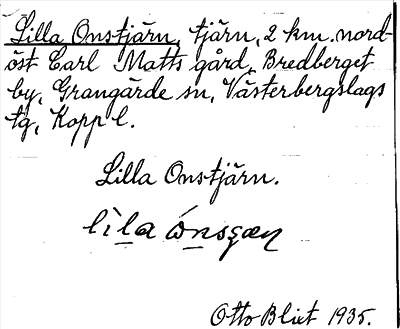 Lilla Onstjärn, tjärn, 2 km. nord-
öst Carl Matts gård, Bredberget
by, Grangärde sn, Västerbergslags
tg, Kopp l.
Lilla Onstjärn.
Otto Blixt 1935.